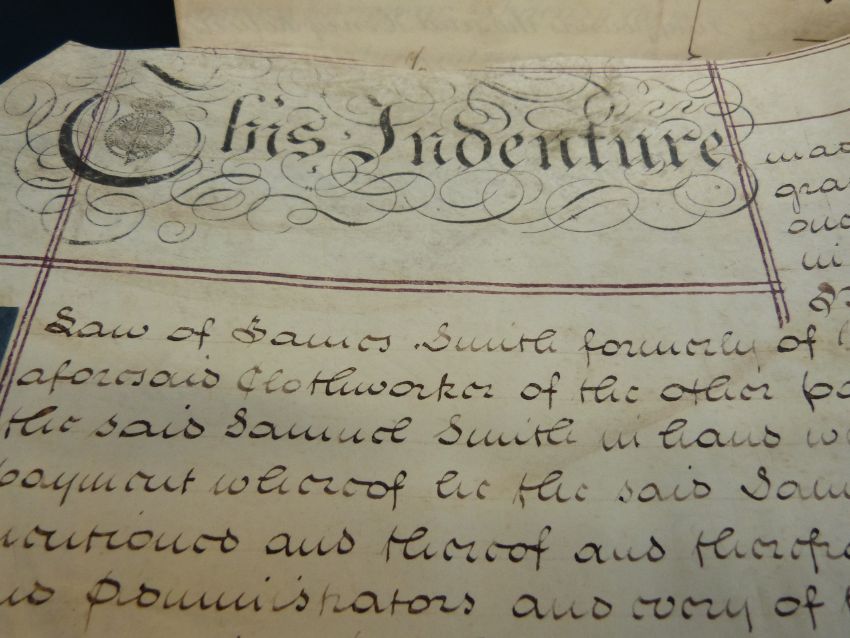 This Indenture
Law of James Smith formerly of
aforesaid Clothworker of the other
the said Samuel Smith in hand
payment whereof he the said Sam
mentioned and thereof and therefr
Administrators and every of